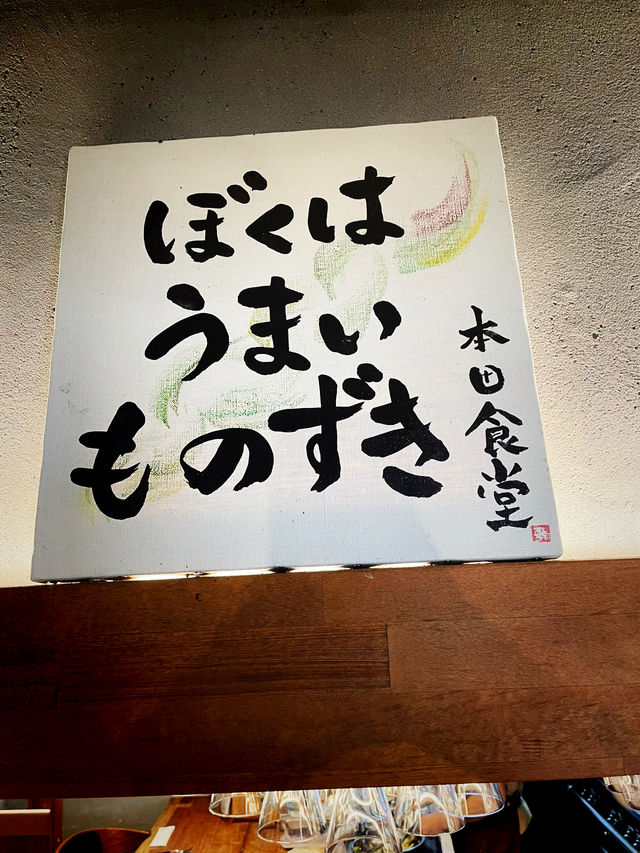 ぼくは
うまい
ものずき
本田食堂